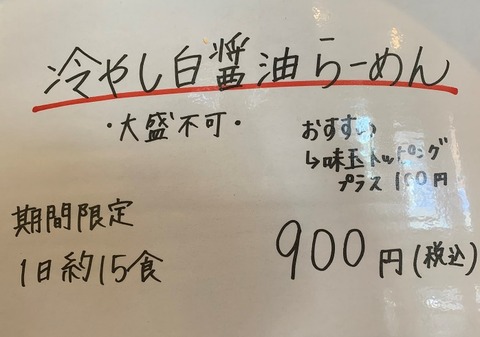 冷やし白醤油らーめん
・大盛不可・
おすすめ
↳味玉トッピング
プラス100円
期間限定
1日約15食
900円(税込)